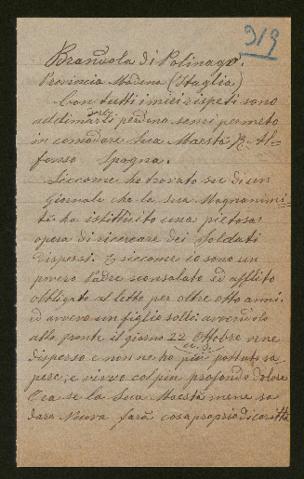 319
Brandola di Polinago.
Provincia Modena (Itaglia)
Con tutti i miei rispeti sono
perdona semi permeto
in comodare Sua Maestà R. Al-
fonso Spagna.
Siccome ho trovato su di un
giornale che la sua Magnanimi-
tà ha istittuito una pietosa
opera di ricercare dei Soldati
Dispersi. E siccome io sono un
povero Padre sconsolato ed aflito
obbligato al letto per oltre otto anni.
ed avevo un figlio sotto avendolo
alla fronte il giorno 22 Ottobre vene
disperso e non ne ho più potuto sa
pere, e vivo col più profondo dolore
Ora se la Sua Maestà mene sa
darà Nuova farà cosa propio di carità